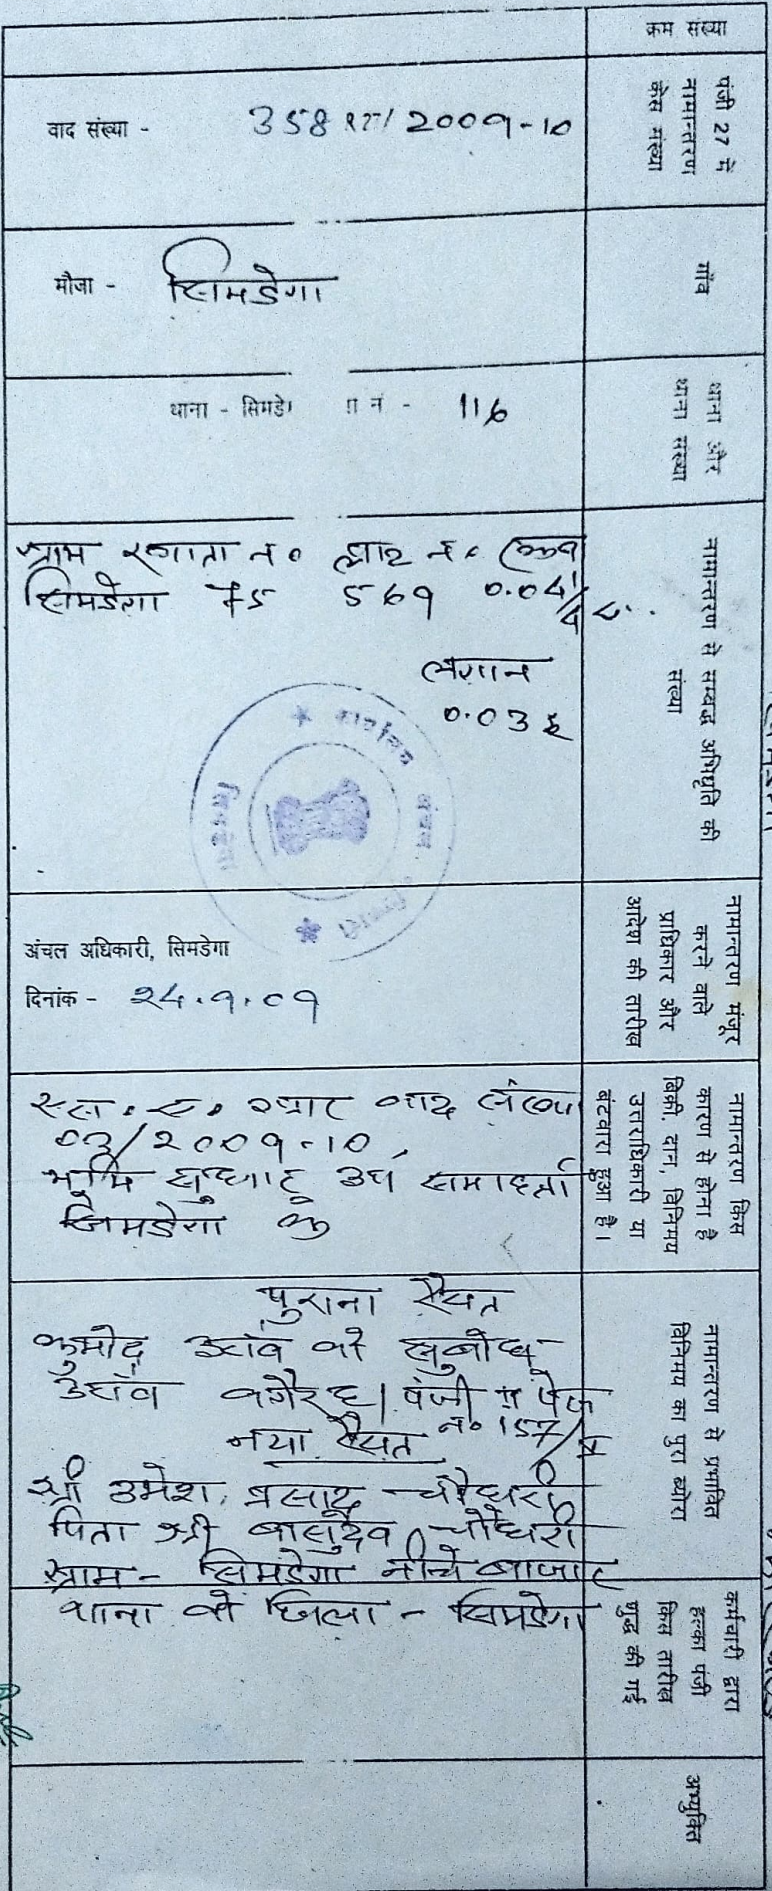 क्रम संख्या
पंजी 27 में
नामान्तरण
केस संख्या
वाद संख्या - 358 R27/2009-10
गाँव
मौजा - सिमडेगा
थाना और
थाना संख्या
थाना - सिमडे ा नं - 116
नामान्तरण से सम्बद्ध अभिधृति की
संख्या
ग्राम खाता न० प्लाट न०
सिमडेगा 75 569 0.04
लगान
0.03
नामान्तरण मंजूर
करने वाले
प्राधिकार और
आदेश की तारीख
अंचल अधिकारी, सिमडेगा
दिनांक - 24.9.09
नामान्तरण किस
कारण से होना है
बिक्री, दान, विनिमय
उत्तराधिकारी या
बंटवारा हुआ है।
एस. ए. आर वाद संख्या
03/2009-10,
भूमि सुधार उप समाहर्ता
सिमडेगा के
नामान्तरण से प्रभावित
विनिमय का पुरा ब्योरा
पुराना रैयत
कुमोद उरांव वो सुबोध
उरांव वगैरह। पंजी II पेज
न० 157/
नया रैयत
श्री उमेश प्रसाद चौधरी
पिता श्री बासुदेव चौधरी
ग्राम - सिमडेगा नीचे बाजार
थाना वो जिला - सिमडेगा
कर्मचारी द्वारा
हल्का पंजी
किस तारीख
शुद्ध की गई
अभ्युक्ति